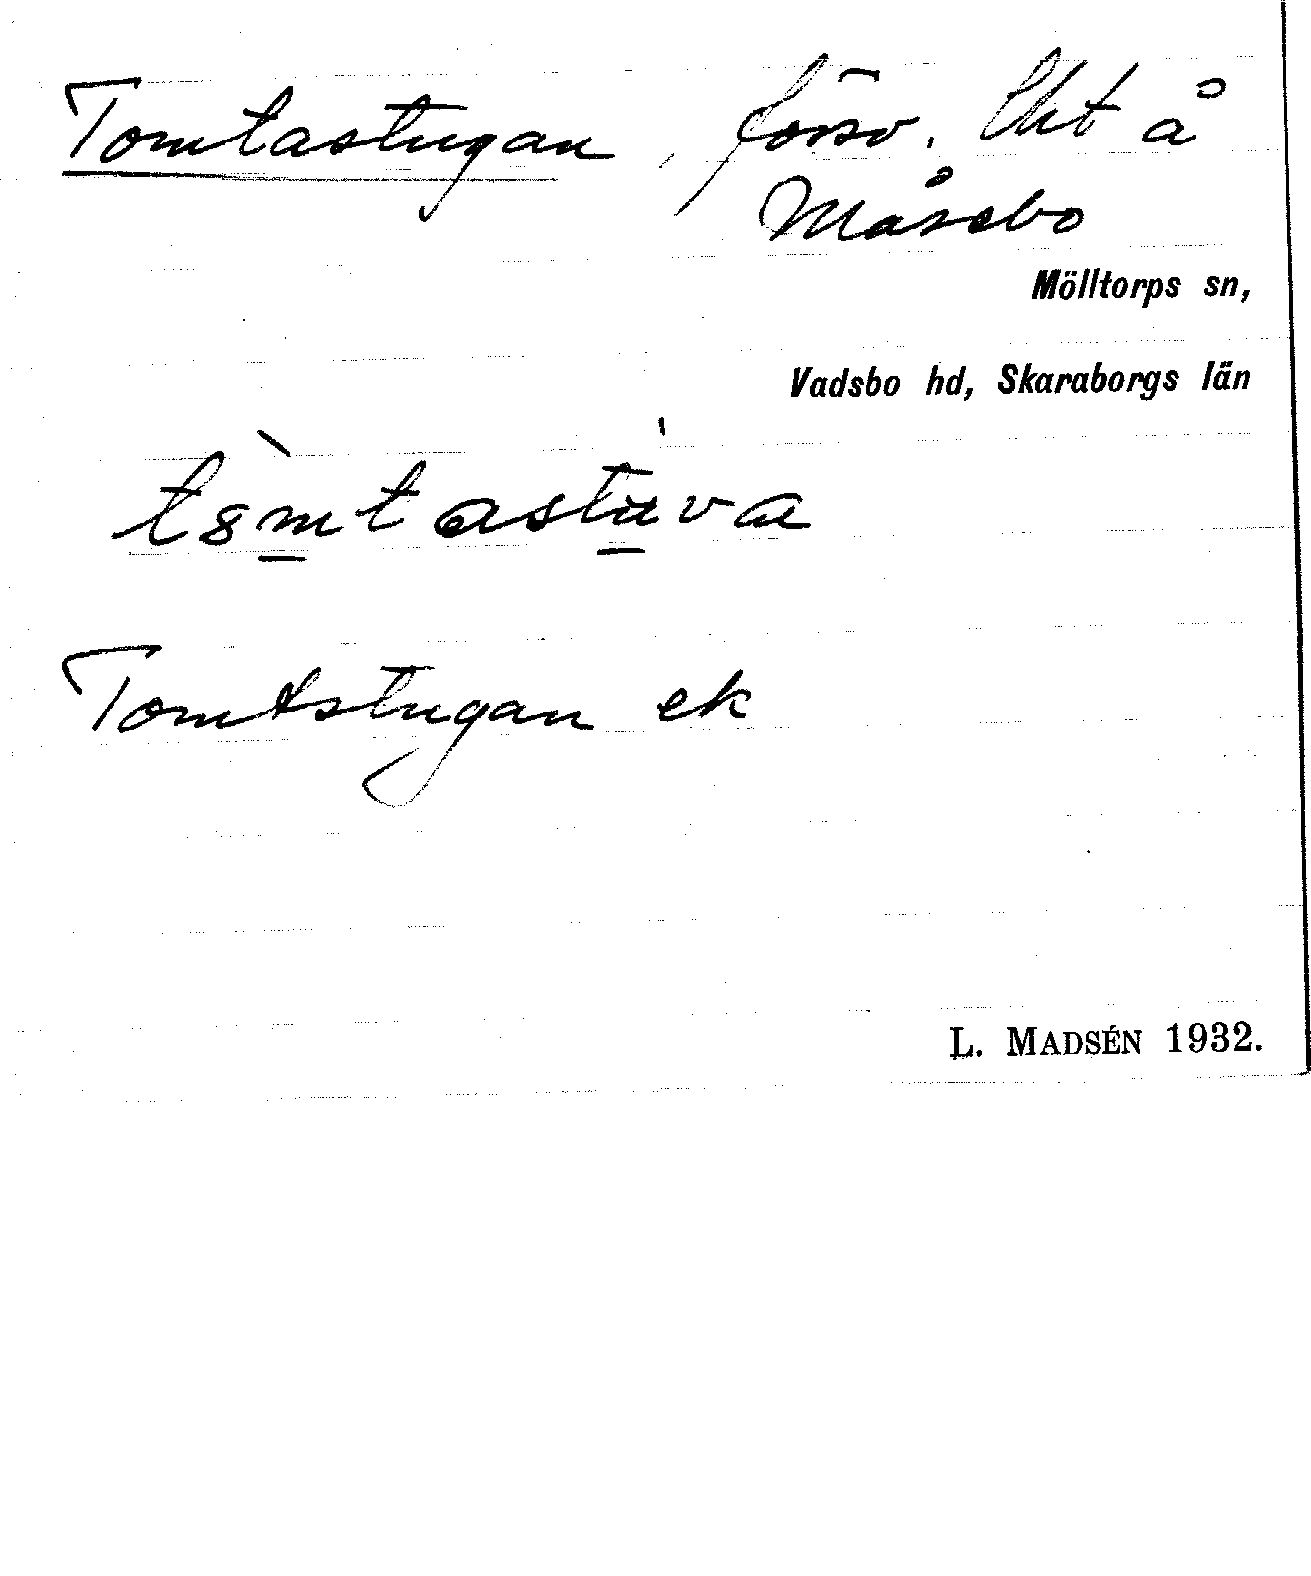 Tomtastugan, försv. lht å
Måsebo
Mölltorps sn,
Vadsbo hd, Skaraborgs län
Tomtstugan ek
L. MADSÉN 1932.